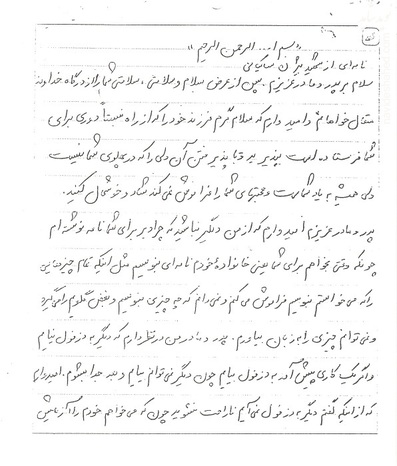 "بسم ا... الرحمن الرحیم"
نامه‌ای از شهید بیژن شاکیانی
سلام بر پدر و مادر عزیزم. پس از عرض سلام و سلامتی، سلامتی شما را از درگاه خداوند
متعال خواهانم و امید دارم که سلام گرم فرزند خود را که از راه نسبتاً دوری برای
شما فرستاده است بپذیرید و با پذیرفتن آن دلی را که در پهلوی شما نیست
ولی همیشه به یاد شماست و محبتهای شما را فراموش نمی‌کند شاد و خوشحال کنید.
پدر و مادر عزیزم امیدوارم که از من دلگیر نباشید که چرا دیر برای شما نامه نوشته‌ام
چونکه وقتی بخواهم برای شما یعنی خانواده خودم نامه‌ای بنویسم مثل اینکه تمام چیزهایی
را که می‌خواستم بنویسم فراموش می‌کنم و نمی‌دانم که چه چیزی بنویسم و بغض گلویم را می‌گیرد
و نمی‌توانم چیزی را به زبان بیاورم. پدر و مادر من در نظر دارم که دیگر به دزفول نیایم
و اگر یک کاری پیش آمد به دزفول بیایم چون دیگر نمی‌توانم بیایم و بعد جدا بشوم. امیدوارم
که از اینکه گفتم دیگر به دزفول نمی‌آیم ناراحت نشوید چون که می‌خواهم خودم را آزمایش